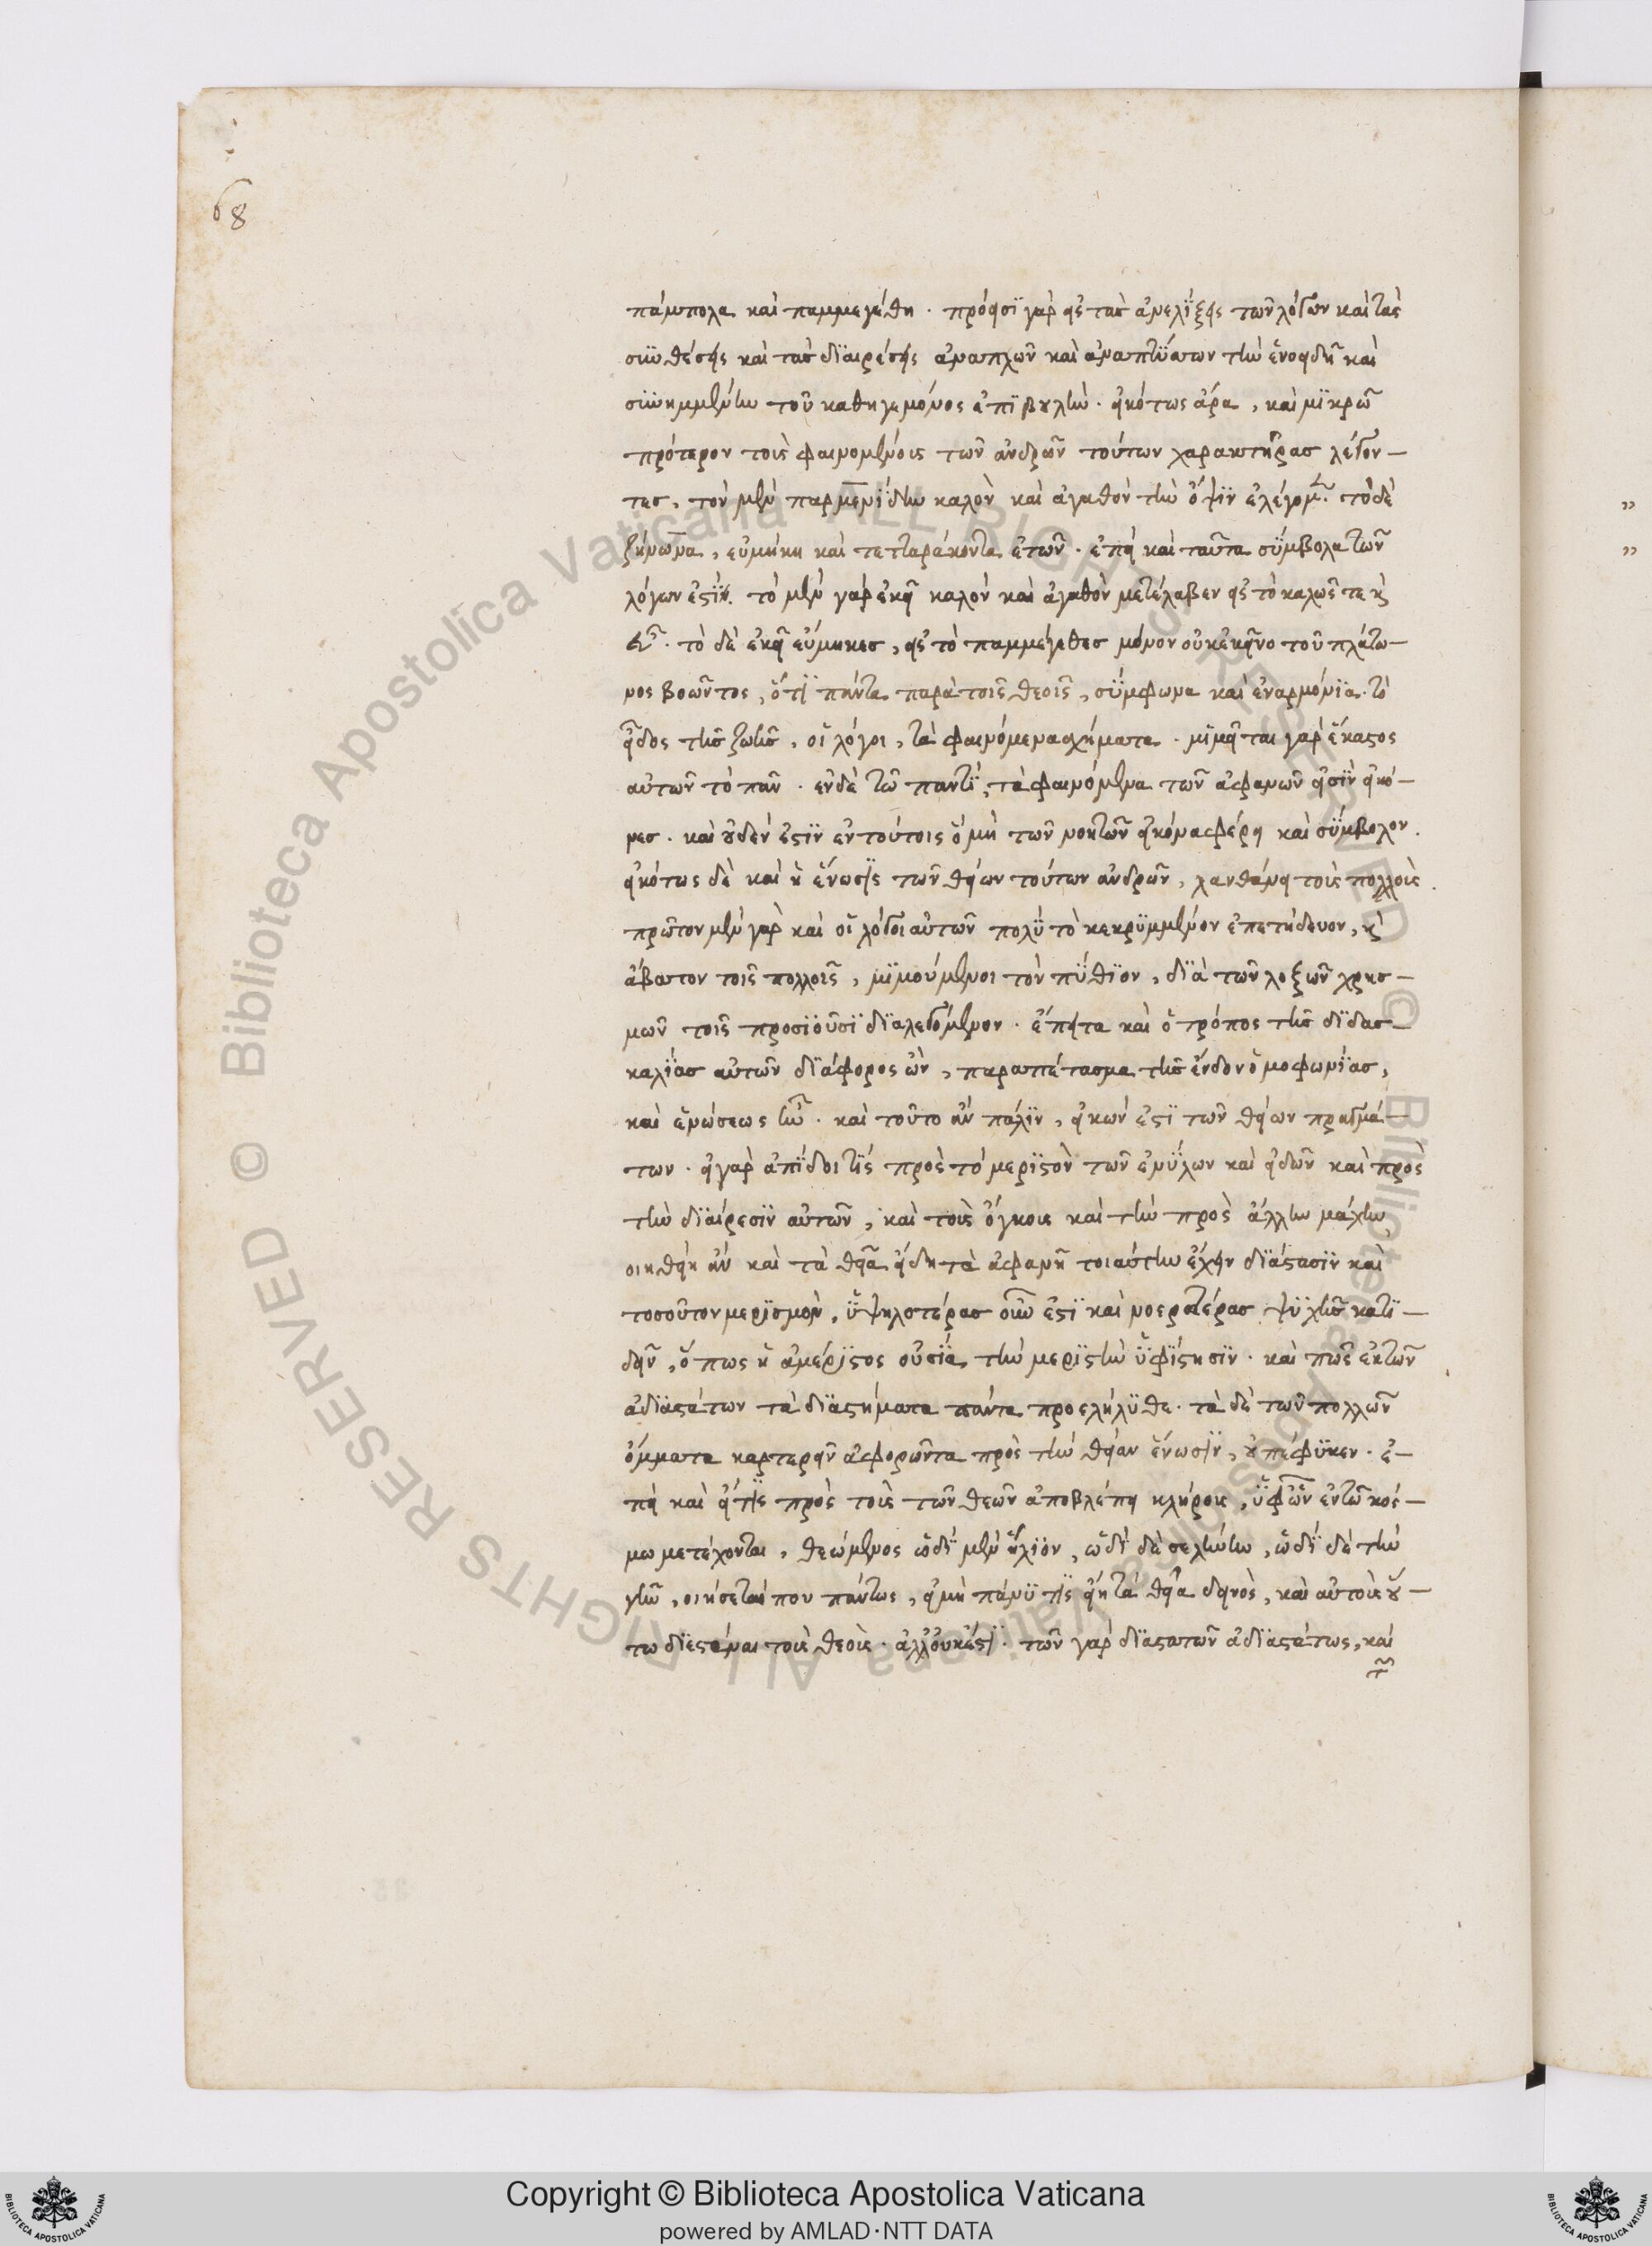 68
πάμπολα καὶ παμμεγέθη. πρόεισϊ γὰρ εἰς τὰς ἀνελίξεις τῶν λόγων καὶ τὰς
συνθέσεις καὶ τὰς διαιρέσεις ἀναπλῶν καὶ ἀναπτύσσων τὴν ἑνοειδῆ καὶ
συνῃρημμένην τοῦ καθηγεμόνος ἐπιβουλήν. εἰκότως ἄρα, καὶ μικρῶ
πρότερον τοὺς φαινομένους τῶν ἀνδρῶν τούτων χαρακτῆρας λέγον-
τες, τὸν μὲν παρμενίδην καλὸν καὶ ἀγαθὸν τὴν ὄψιν ἐλέγομεν. τὸ δὲ
ζήνωνα, εὐμήκη καὶ τετταράκοντα ἐτῶν. ἐπεὶ καὶ ταῦτα σύμβολα τῶν
λόγων ἐστίν. τὸ μὲν γὰρ ἐκεῖ καλὸν καὶ ἀγαθὸν μετέλαβεν εἰς τὸ καλῶς τε καὶ
εὖ. τὸ δὲ ἐκεῖ εὔμηκες, εἰς τὸ παμμέγεθες μόνον οὐκ ἐκεῖνο τοῦ πλάτω-
νος βοῶντος, ὅτι πάντα παρὰ τοῖς θεοῖς, σύμφωνα καὶ ἐναρμόνια. τὸ
εἶδος τῆς ζωῆς, οἱ λόγοι, τὰ φαινόμενα σχήματα. μιμεῖται γὰρ ἕκαστος
αὐτῶν τὸ πᾶν. ἐν δὲ τῶ παντί, τὰ φαινόμενα τῶν ἀφανῶν εἰσὶν εἰκό-
νες. καὶ οὐδέν ἐστιν ἐν τούτοις ὃ μὴ τῶν νοητῶν εἰκόνα φέρει καὶ σύμβολον.
εἰκότως δὲ καὶ ἡ ἕνωσις τῶν θείων τούτων ἀνδρῶν, λανθάνει τοὺς πολλούς.
πρῶτον μὲν γὰρ καὶ οἱ λόγοι αὐτῶν πολὺ τὸ κεκρυμμένον ἐπετήδευον, καὶ
ἄβατον τοῖς πολλοῖς, μιμούμενοι τὸν πύθιον, διὰ τῶν λοξῶν χρησ-
μῶν τοῖς προσιοῦσι διαλεγόμενον. ἔπειτα καὶ ὁ τρόπος τῆς διδασ-
καλίας αὐτῶν διάφορος ὢν, παραπέτασμα τῆς ἔνδον ὁμοφωνίας,
καὶ ἑνώσεως ἦν. καὶ τοῦτο ἂν πάλιν, εἰκών ἐστι τῶν θείων πραγμά-
των. εἰ γὰρ ἀπίδοι τίς πρὸς τὸ μεριστὸν τῶν ἐνύλων καὶ εἰδῶν καὶ πρὸς
τὴν διαίρεσιν αὐτῶν, καὶ τοὺς ὄγκους καὶ τὴν πρὸς ἄλληλα μάχην,
οἰηθείη ἂν καὶ τὰ θεῖα εἴδη τὰ ἀφανῆ τοιαύτην ἔχειν διάστασιν καὶ
τοσοῦτον μερισμὸν, ὑψηλοτέρας οὖν ἐστι καὶ νοερωτέρας ψυχῆς κατι-
δεῖν, ὅπως ἡ ἀμέριστος οὐσία, τὴν μεριστὴν ὑφίστησιν. καὶ πῶς ἐκ τῶν
ἀδιαστάτων τὰ διαστήματα πάντα προελήλυθε. τὰ δὲ τῶν πολλῶν
ὄμματα καρτερεῖν ἀφορῶντα πρὸς τὴν θείαν ἕνωσιν, οὐ πέφυκεν. ἐ-
πεὶ καὶ εἴ τις πρὸς τοὺς τῶν θεῶν ἀποβλέπει κλήρους, ὑφ' ὧν ἐν τῶ κόσ-
μω μετέχονται, θεώμενος ὡδὶ μὲν ἥλιον, ὡδὶ δὲ σελήνην, ὡδὶ δὲ τὴν
γῆν, οἰήσεταί που πάντως, εἰ μὴ πάνυ τις εἴη τὰ θεῖα δεινὸς, καὶ αὐτοὺς οὕ-
τω διεστάναι τοὺς θεούς. ἀλλ' οὐκ ἔστι. τῶν γὰρ διαστατῶν ἀδιαστάτως, καὶ
τῶν